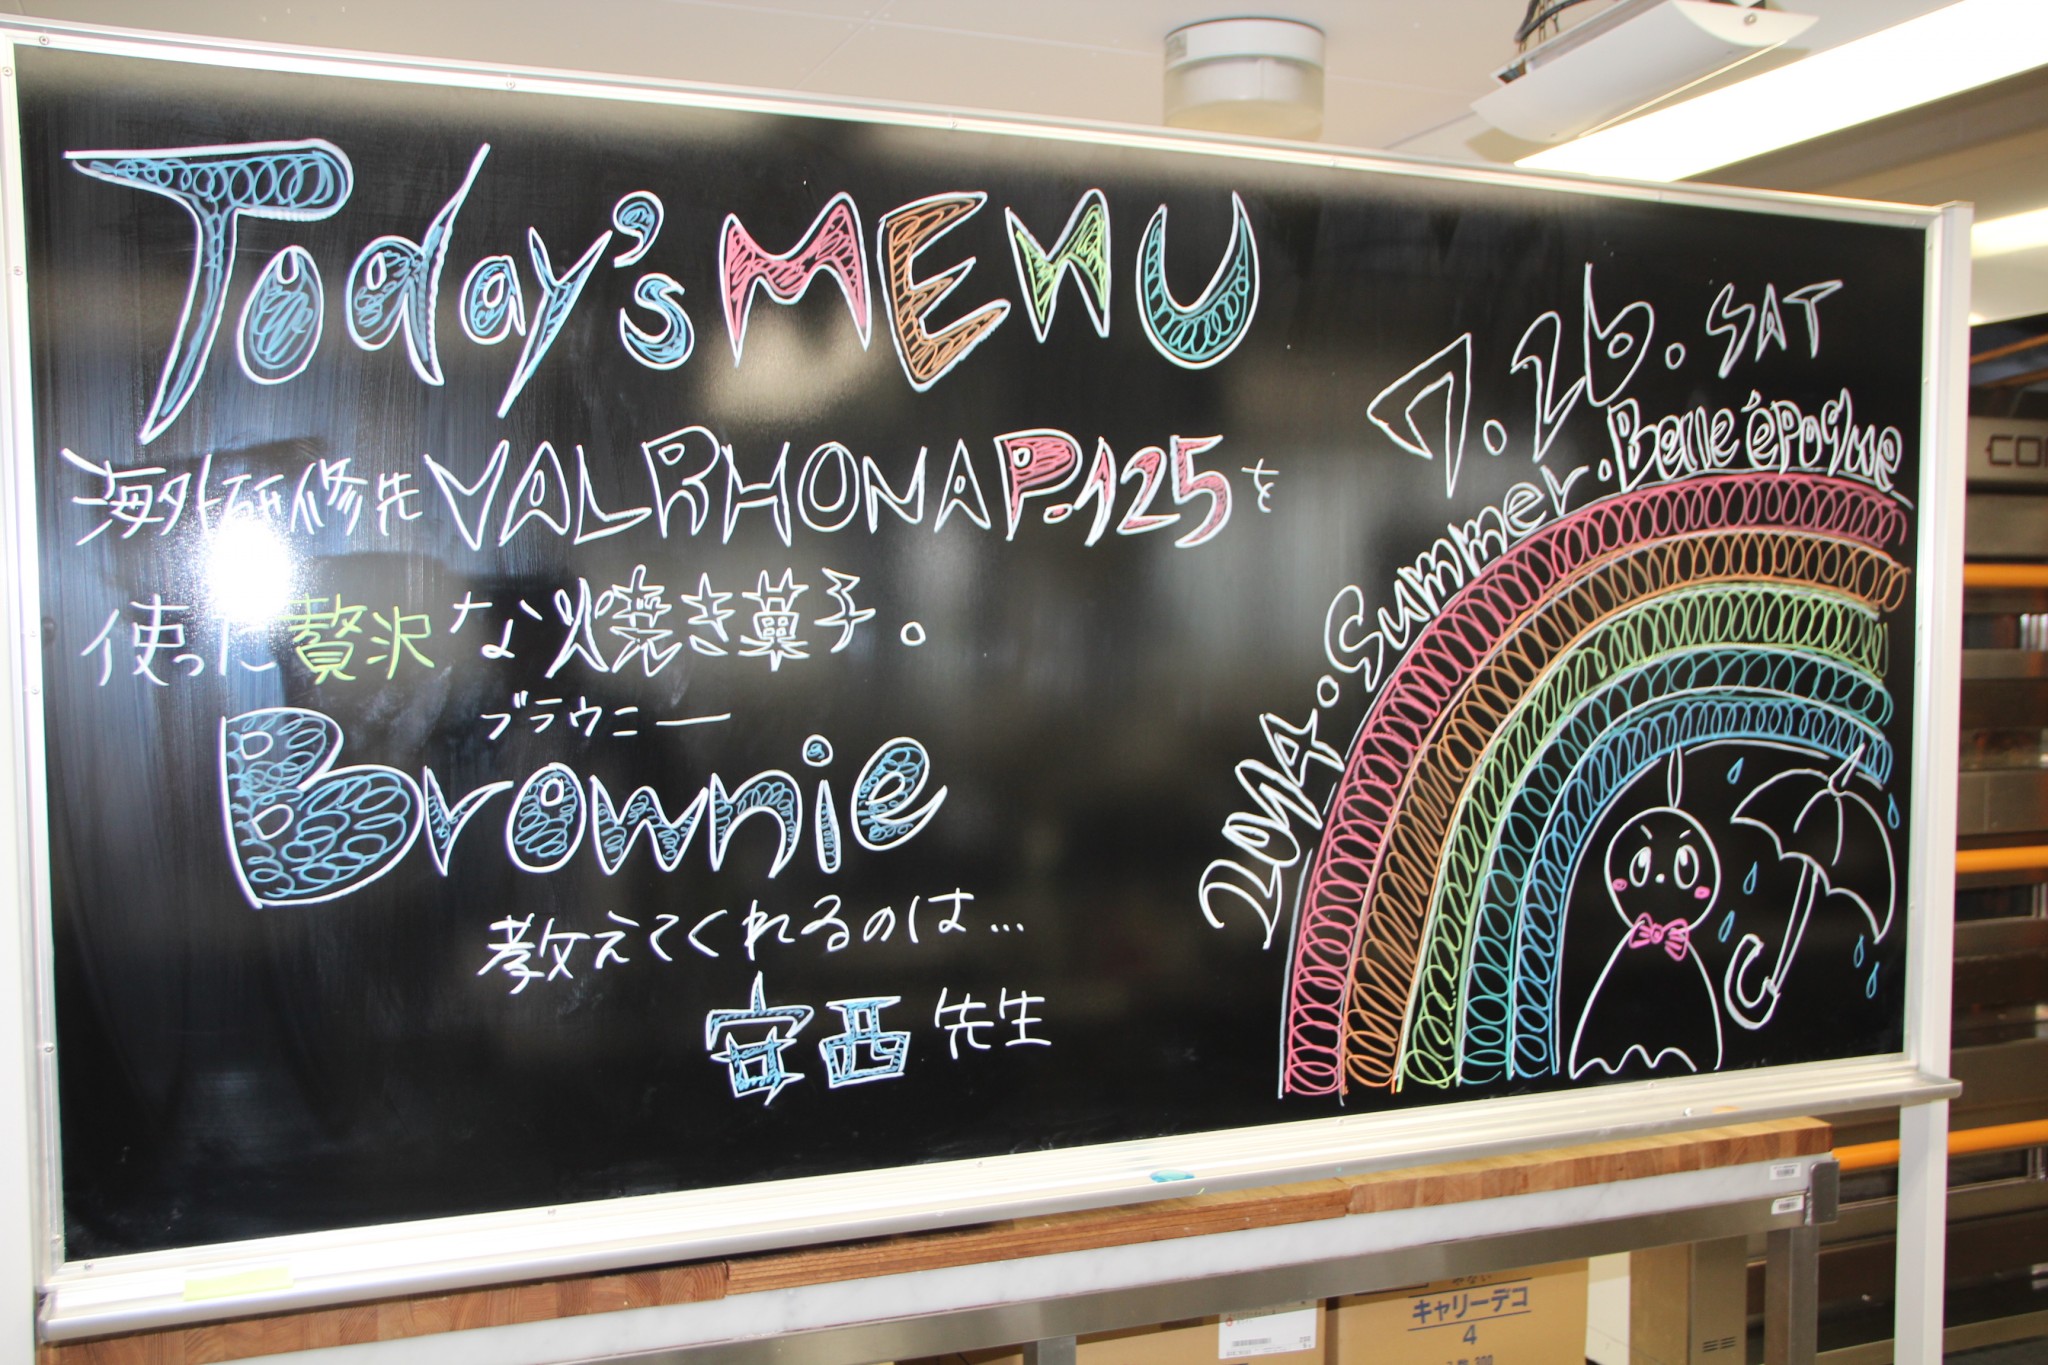 Today's MENU
海外研修先VALRHONA P.125を
使った贅沢な焼き菓子。
ブラウニー
Brownie
教えてくれるのは…
安西先生
7.26.SAT
2014.Summer.Belle époque
キャリーデコ
4